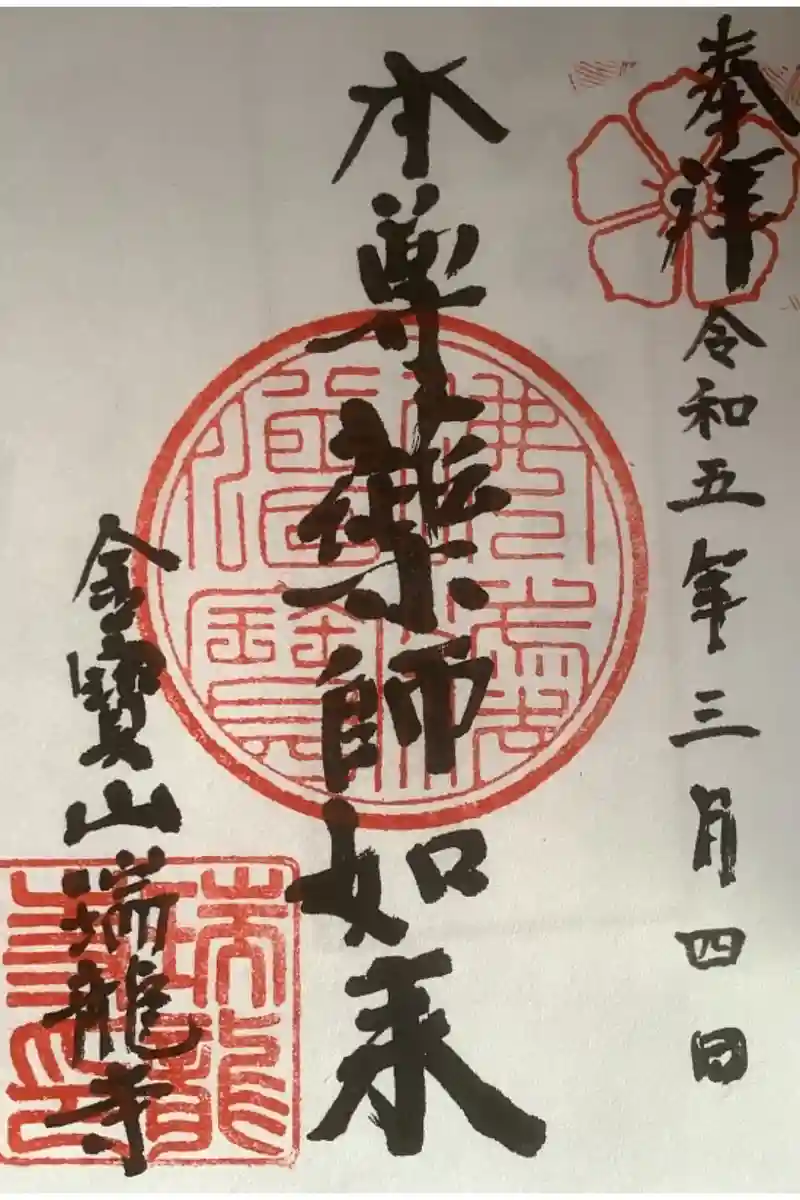 奉拝
令和五年三月四日
本尊薬師如来
佛法僧寳
金寶山瑞龍寺
瑞龍寺印